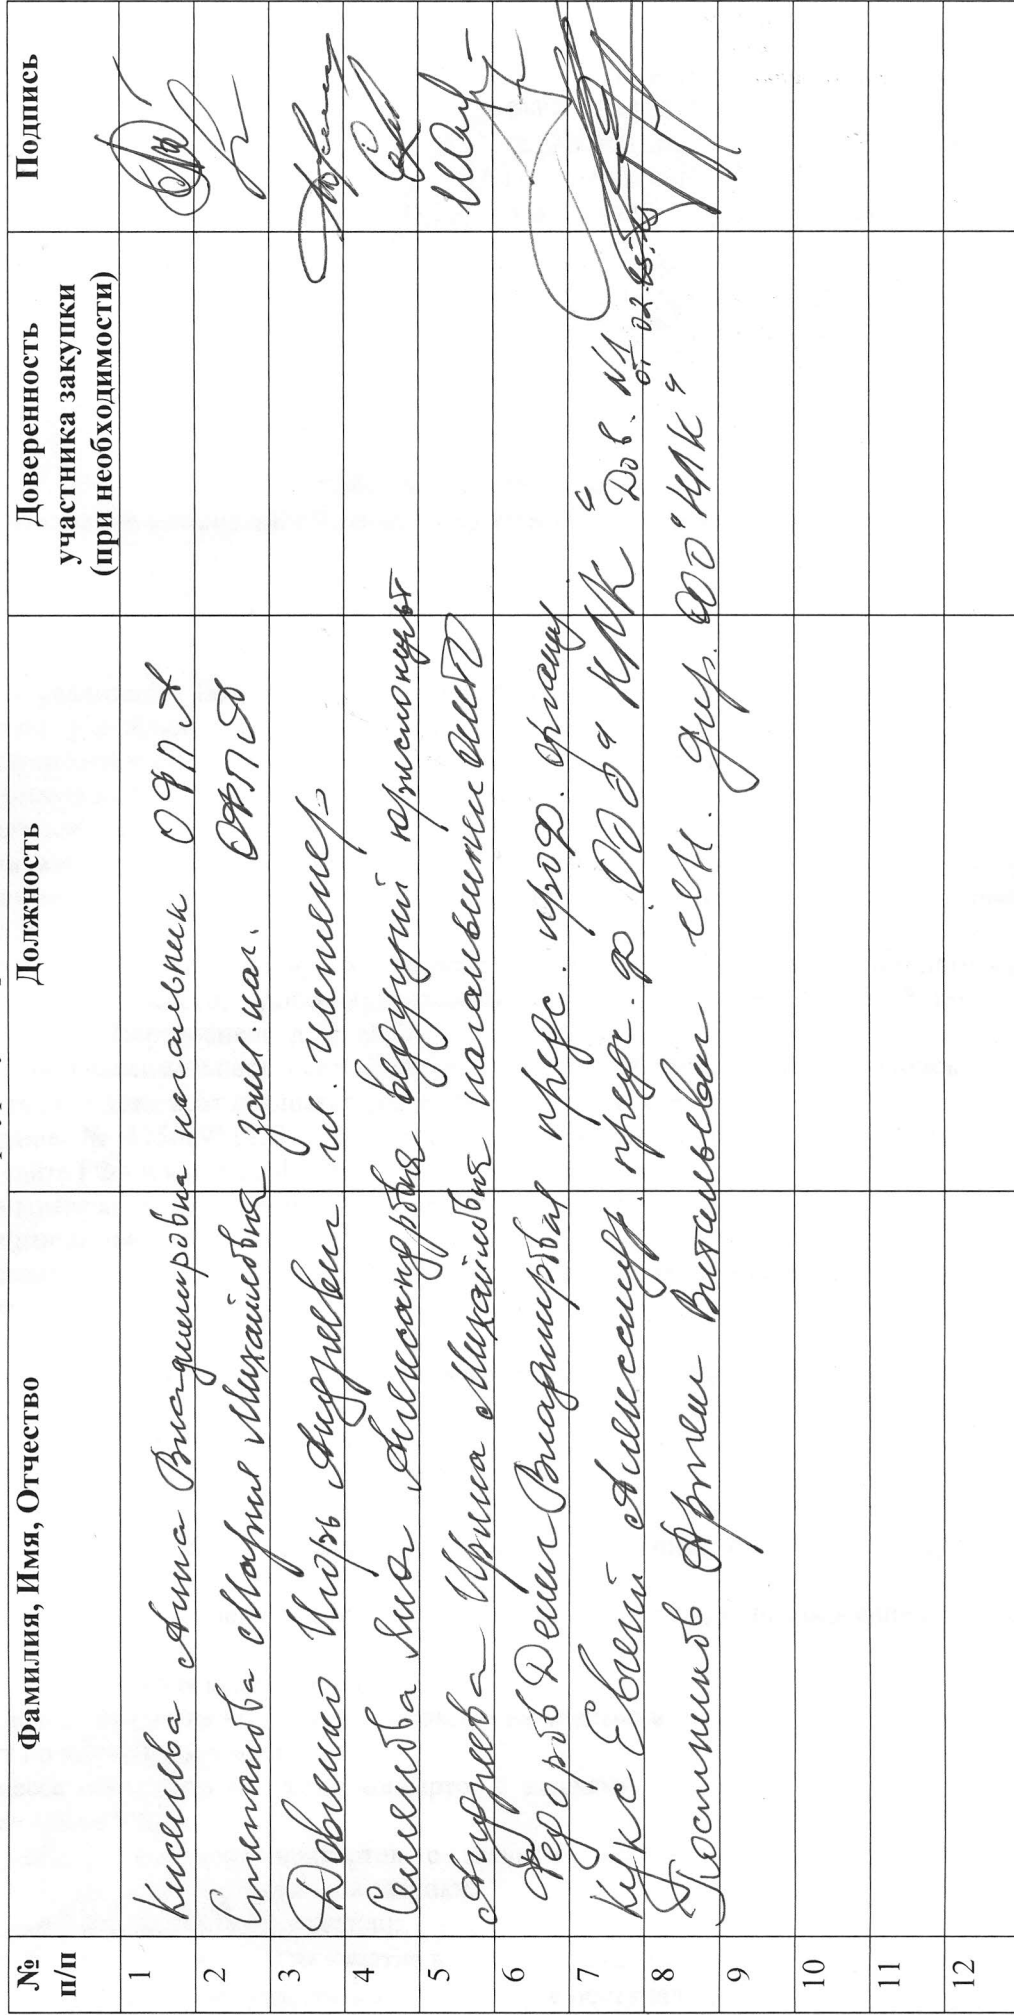 № п/п Фамилия, Имя, Отчество Должность Доверенность участника закупки (при необходимости) Подпись
1 Киселева Анна Владимировна начальник ОФПД
2 Степанова Мария Михайловна зам нач. ОФПД
3 Довженко Игорь Андреевич гл. инженер
4 Семенова Анна Александровна ведущий юрисконсульт
5 Андреева Ирина Михайловна начальник
6 Федоров Денис Владимирович предс. проф. организ
7 Кукс Евгений Александр. предс. ф. ООО "НМК" Дов. №1 от 02.
8 Постников Артем Витальевич ген. дир. ООО "НМК"
9
10
11
12